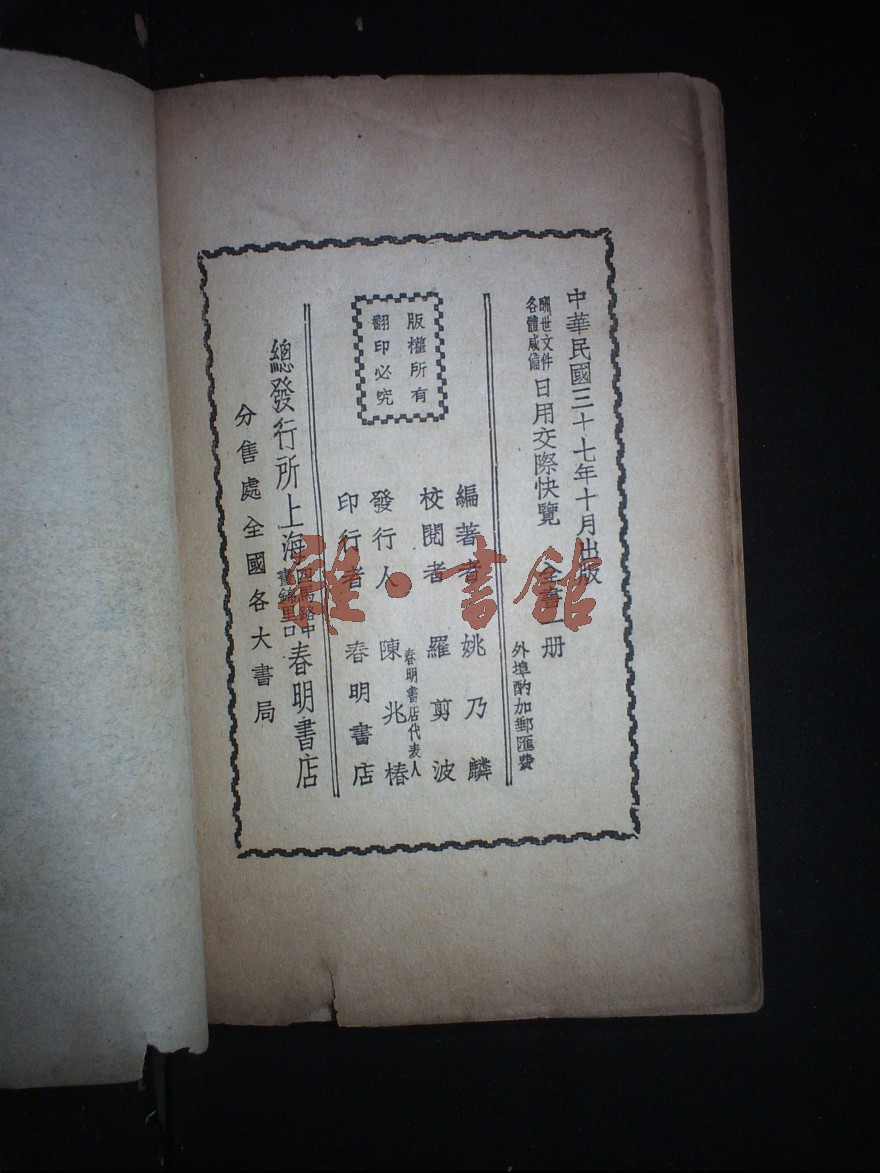 中華民國三十七年十月出版
酬世文件
各體咸備
日用交際快覽 全書一册
外埠酌加郵匯費
編著者 姚乃麟
校閱者 羅剪波
春明書店代表人
發行人 陳兆椿
印行者 春明書店
版權所有
翻印必究
總發行所上海
四馬路中
晝錦里口
春明書店
分售處全國各大書局
雜·書館